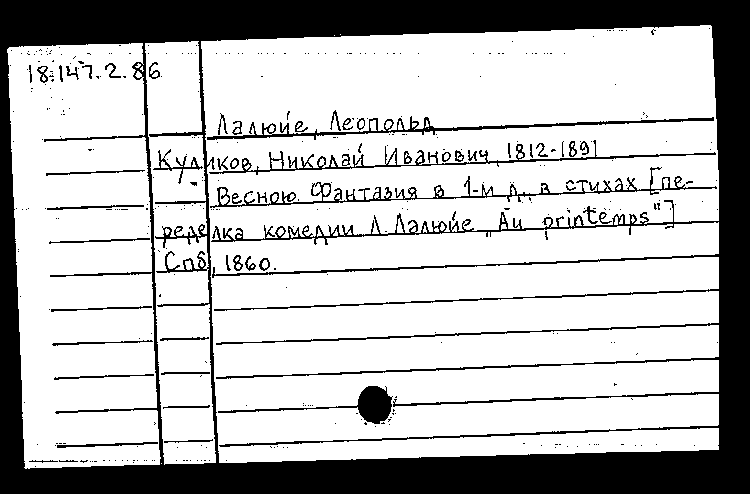 18.147.2.86
Лалюйе, Леопольд
Куликов, Николай Иванович, 1812-1891
Весною. Фантазия в 1-м д., в стихах [пе-
ределка комедии Л. Лалюйе „Au printemps"]
Спб, 1860.